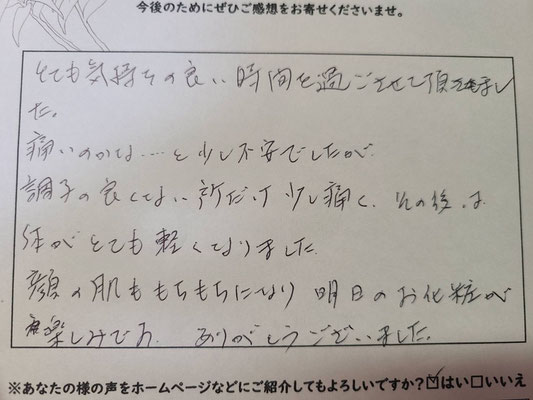 今後のためにぜひご感想をお寄せくださいませ。
とても気持ちの良い時間を過ごさせて頂きまし
た。
痛いのかな……と少し不安でしたが
調子の良くない所だけ少し痛く、その後は
体がとても軽くなりました
顔の肌ももちもちになり 明日のお化粧が
楽しみです。ありがとうございました。
※あなたの様の声をホームページなどにご紹介してもよろしいですか?☑はい□いいえ